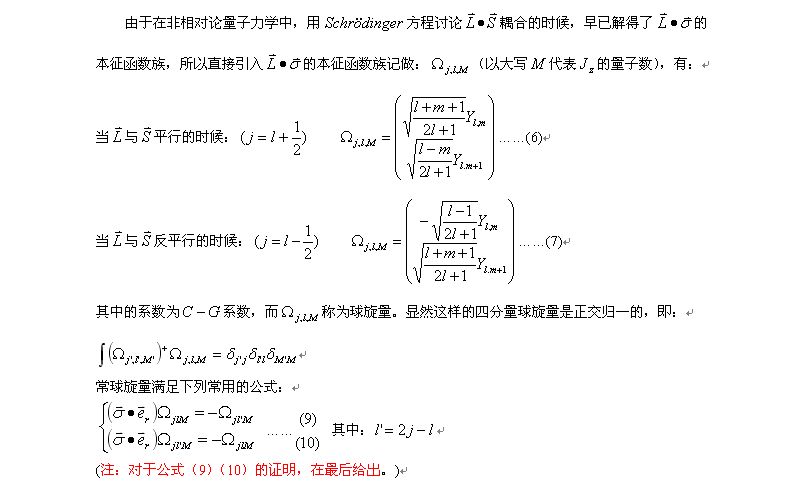 由于在非相对论量子力学中，用 Schrödinger 方程讨论 $\vec{L}\bullet\vec{S}$ 耦合的时候，早已解得了 $\vec{L}\bullet\vec{\sigma}$ 的
本征函数族，所以直接引入 $\vec{L}\bullet\vec{\sigma}$ 的本征函数族记做：$\Omega_{j,l,M}$（以大写 M 代表 $J_z$ 的量子数），有：
当 $\vec{L}$ 与 $\vec{S}$ 平行的时候：$(j=l+\frac{1}{2})$ $\Omega_{j,l,M}=\begin{pmatrix}\sqrt{\frac{l+m+1}{2l+1}}Y_{l,m}\\ \sqrt{\frac{l-m}{2l+1}}Y_{l.m+1}\end{pmatrix}$ ……(6)
当 $\vec{L}$ 与 $\vec{S}$ 反平行的时候：$(j=l-\frac{1}{2})$ $\Omega_{j,l,M}=\begin{pmatrix}-\sqrt{\frac{l-1}{2l+1}}Y_{l,m}\\ \sqrt{\frac{l+m+1}{2l+1}}Y_{l.m+1}\end{pmatrix}$ ……(7)
其中的系数为 C－G 系数，而 $\Omega_{j,l,M}$ 称为球旋量。显然这样的四分量球旋量是正交归一的，即：
$\int(\Omega_{j',l',M'})^{+}\Omega_{j,l,M}=\delta_{j'j}\delta_{l'l}\delta_{M'M}$
常球旋量满足下列常用的公式：
$\begin{cases}(\vec{\sigma}\bullet\vec{e}_r)\Omega_{jlM}=-\Omega_{jl'M}\\(\vec{\sigma}\bullet\vec{e}_r)\Omega_{jl'M}=-\Omega_{jlM}\end{cases}$ ……$\begin{matrix}(9)\\(10)\end{matrix}$ 其中：$l'=2j-l$
(注：对于公式（9）（10）的证明，在最后给出。)